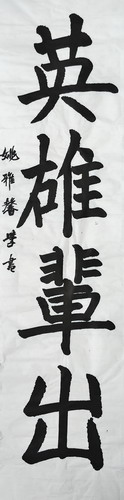 英雄輩出
姚雅馨学书